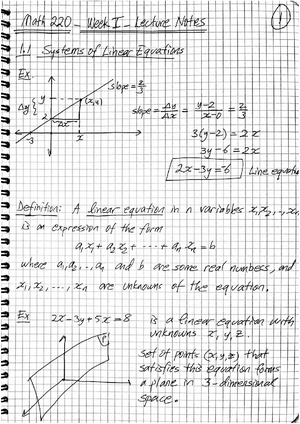 Math 220 - Week I - Lecture Notes
1
1.1 Systems of Linear Equations
Ex.
slope = 2/3
Δy { y (x,y)
2
Δx
-3 x
slope = Δy/Δx = y-2/x-0 = 2/3
3(y-2) = 2x
3y-6 = 2x
2x-3y=-6 Line equation
Definition: A linear equation in n variables x₁,x₂,..,xₙ
is an expression of the form
a₁x₁ + a₂x₂ + ··· + aₙxₙ = b
where a₁,a₂,..,aₙ and b are some real numbers, and
x₁, x₂, ..., xₙ are unknowns of the equation.
Ex 2x-3y+5z=8 is a linear equation with
unknowns x, y, z.
set of points (x,y,z) that
satisfies this equation forms
a plane in 3-dimensional
space.